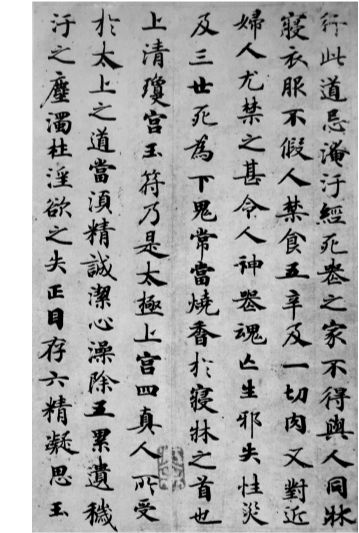 行此道忌淹汙經死丧之家不得與人同牀
寝衣服不假人禁食五辛及一切肉又對近
婦人尤禁之甚令人神喪魂亡生邪失性災
及三世死為下鬼常當燒香於寝牀之首也
上清瓊宫玉符乃是太極上宫四真人所受
於太上之道當湏精誠潔心澡除五累遺穢
汙之塵濁杜淫欲之失正目存六精凝思玉